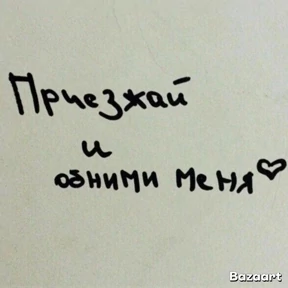 Приезжай
и
обними меня♡
Bazaart